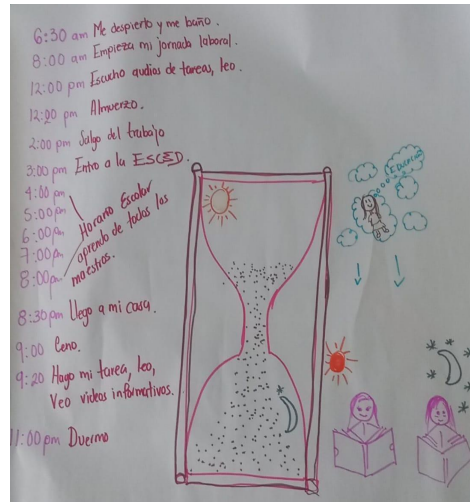 6:30 am Me despierto y me baño.
8:00 am Empieza mi jornada laboral.
12:00 pm Escucho audios de tareas, leo.
12:20 pm Almuerzo.
2:00 pm Salgo del trabajo
3:00 pm Entro a la ESCED.
4:00 pm
5:00 pm Horario Escolar
6:00 pm aprendo de todos los
7:00 pm maestros.
8:00 pm
8:30 pm Llego a mi casa.
9:00 Ceno.
9:20 Hago mi tarea, leo,
Veo videos informativos.
11:00 pm Duermo